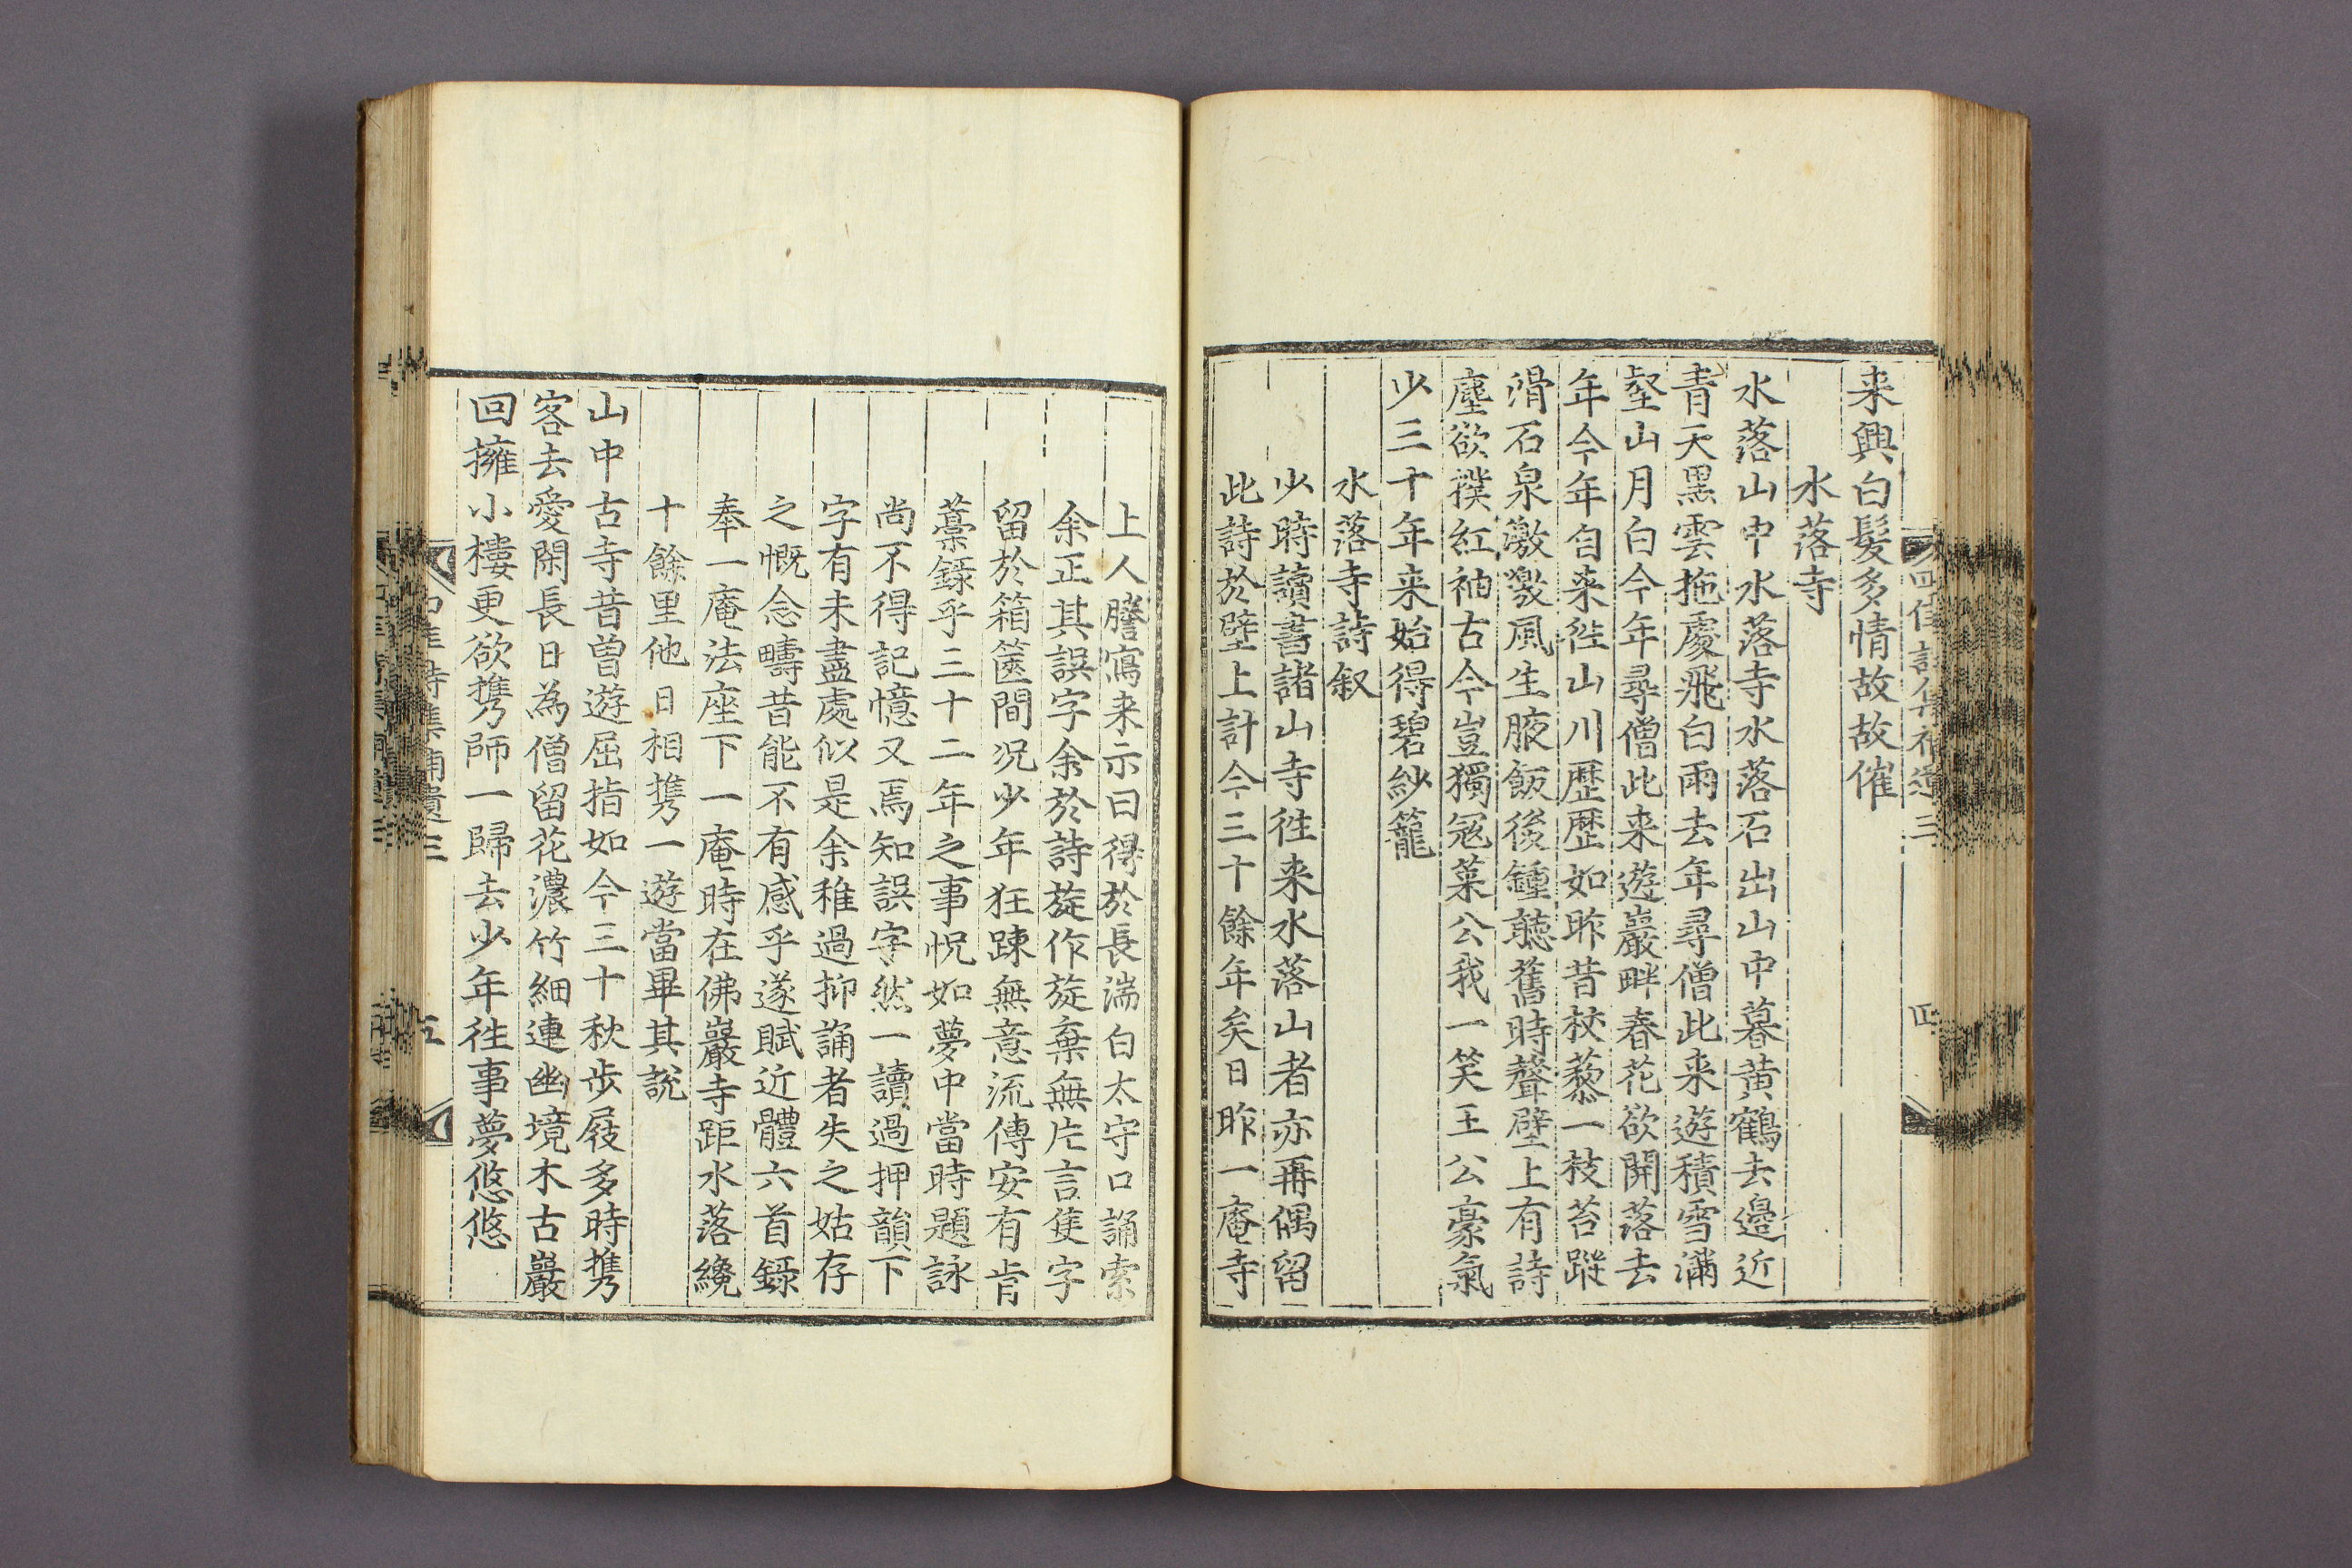 来興白髮多情故故催
水落寺
水落山中水落寺水落石出山中暮黄鶴去邉近
青天黒雲拖處飛白雨去年尋僧此来遊積雪滿
壑山月白今年尋僧此来遊巖畔春花欲開落去
年今年自来往山川歷歷如昨昔杖藜一枝苔蹤
滑石泉激激風生腋飯後鍾聽舊時聲壁上有詩
塵欲襆紅袖古今豈獨冦萊公我一笑王公豪氣
少三十年来始得碧紗籠
水落寺詩叙
少時讀書諸山寺往来水落山者亦再偶留
此詩於壁上計今三十餘年矣日昨一庵寺
四佳詩集補遺三
四
上人謄寫来示曰得於長湍白太守口誦索
余正其誤字余於詩旋作旋棄無片言隻字
留於箱篋間況少年狂踈無意流傳安有肯
藁録乎三十二年之事怳如夢中當時題詠
尚不得記憶又焉知誤字然一讀過押韻下
字有未盡處似是余稚過抑誦者失之姑存
之慨念疇昔能不有感乎遂賦近體六首録
奉一庵法座下一庵時在佛巖寺距水落纔
十餘里他日相携一遊當畢其說
山中古寺昔曽遊屈指如今三十秋步屐多時携
客去愛閑長日為僧留花濃竹細連幽境木古巖
回擁小樓更欲携師一歸去少年往事夢悠悠
四佳詩集補遺三
五